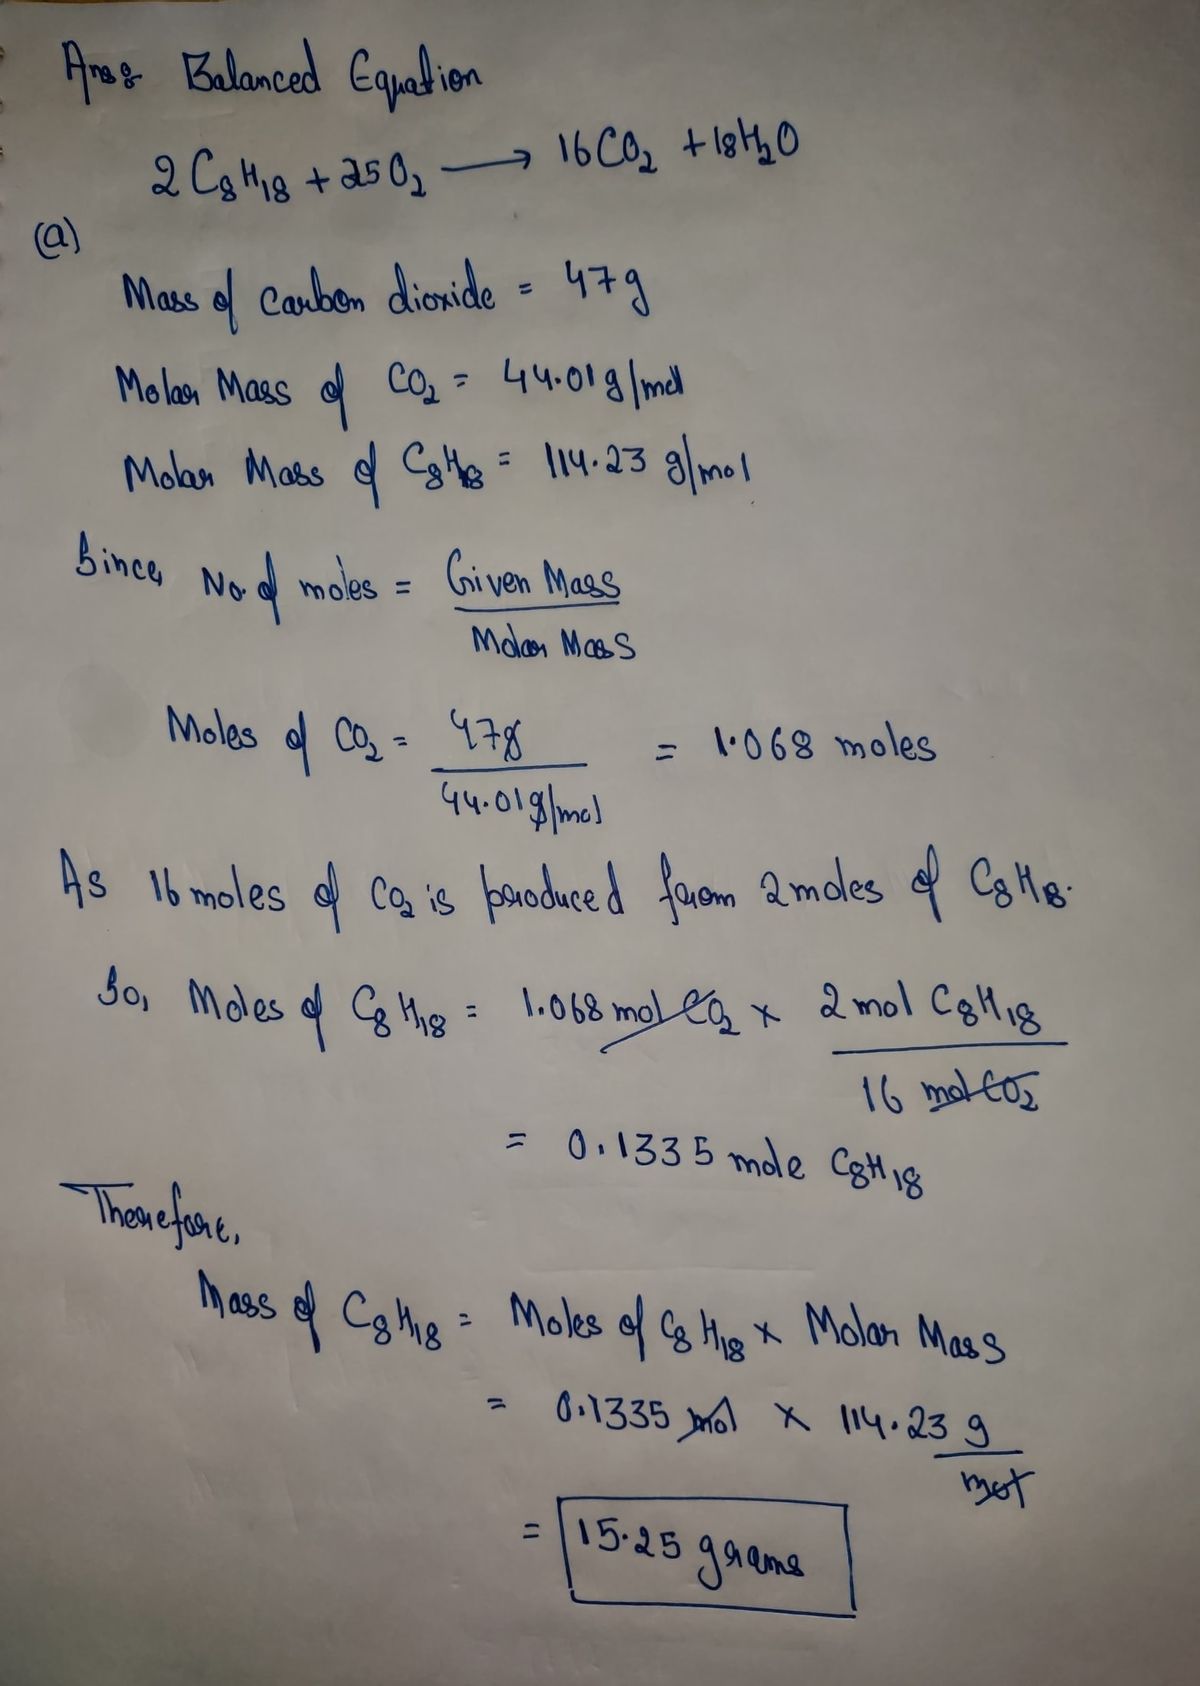 Ans:- Balanced Equation
2 C8H18 + 25 O2 ⟶ 16 CO2 + 18 H2O
(a)
Mass of carbon dioxide = 47g
Molar Mass of CO2 = 44.01 g/mol
Molar Mass of C8H18 = 114.23 g/mol
Since, No. of moles = Given Mass
Molar Mass
Moles of CO2 = 47g = 1.068 moles
44.01g/mol
As 16 moles of CO2 is produced from 2 moles of C8H18.
So, Moles of C8H18 = 1.068 mol CO2 × 2 mol C8H18
16 mol CO2
= 0.1335 mole C8H18
Therefore,
Mass of C8H18 = Moles of C8H18 × Molar Mass
= 0.1335 mol × 114.23 g
mol
= 15.25 grams